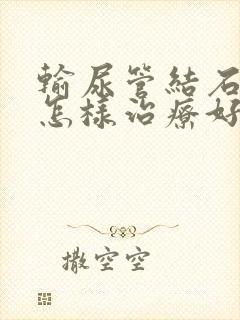 輸尿管結石
怎樣治療好
撒空空